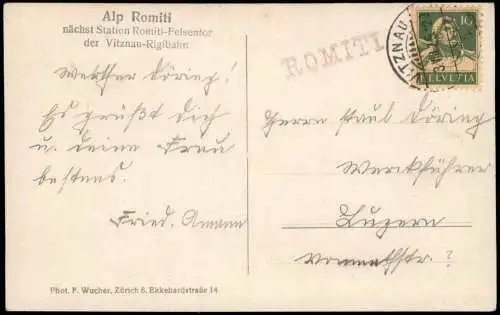 Alp Romiti
nächst Station Romiti-Felsentor
der Vitznau-Rigibahn
ROMITI
VITZNAU
10
HELVETIA
Werther Döring!
Es grüßt Dich
u. deine Frau
bestens.
Fried. Amann
Herrn Paul Döring
Werkführer
Luzern
Phot. F. Wucher, Zürich 6, Ekkehardstraße 14